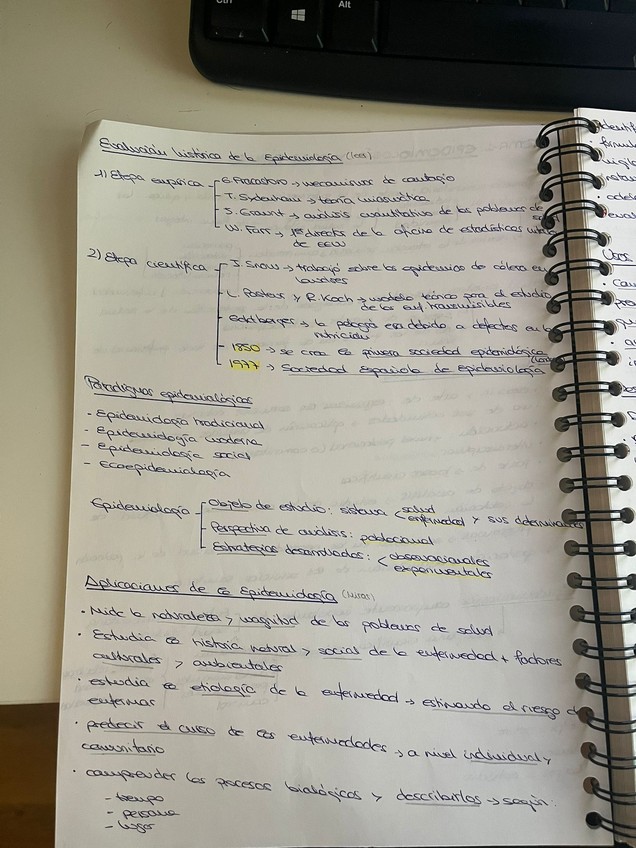 Ctrl
Alt
Evolución histórica de la Epidemiología (leer)
1) Etapa empírica
G. Fracastoro → mecanismos de contagio
T. Sydenham → teoría miasmática
J. Graunt → análisis cuantitativo de los problemas de
W. Farr → 1er director de la oficina de estadísticas
de EEUU
2) Etapa científica
J. Snow → trabajó sobre las epidemias de cólera en
Londres
L. Pasteur y R. Koch → modelo teórico para el estudio
de las enf transmisibles
Goldberger → la pelagra era debido a defectos en la
nutrición
1850 → se crea la primera sociedad epidemiológica
1977 → Sociedad Española de Epidemiología
Paradigmas epidemiológicos
- Epidemiología tradicional
- Epidemiología moderna
- Epidemiología social
- Ecoepidemiología
Epidemiología
Objeto de estudio: sistema < salud
enfermedad y sus determinantes
Perspectiva de análisis: poblacional
Estrategias desarrolladas: < observacionales
experimentales
Aplicaciones de la Epidemiología (mirar)
• Mide la naturaleza y magnitud de los problemas de salud
• Estudia la historia natural y social de la enfermedad + factores
culturales y ambientales
• estudia la etiología de la enfermedad → estimando el riesgo de
enfermar
• predecir el curso de las enfermedades → a nivel individual y
comunitario
• comprender los procesos biológicos y describirlos → según:
- tiempo
- persona
- lugar